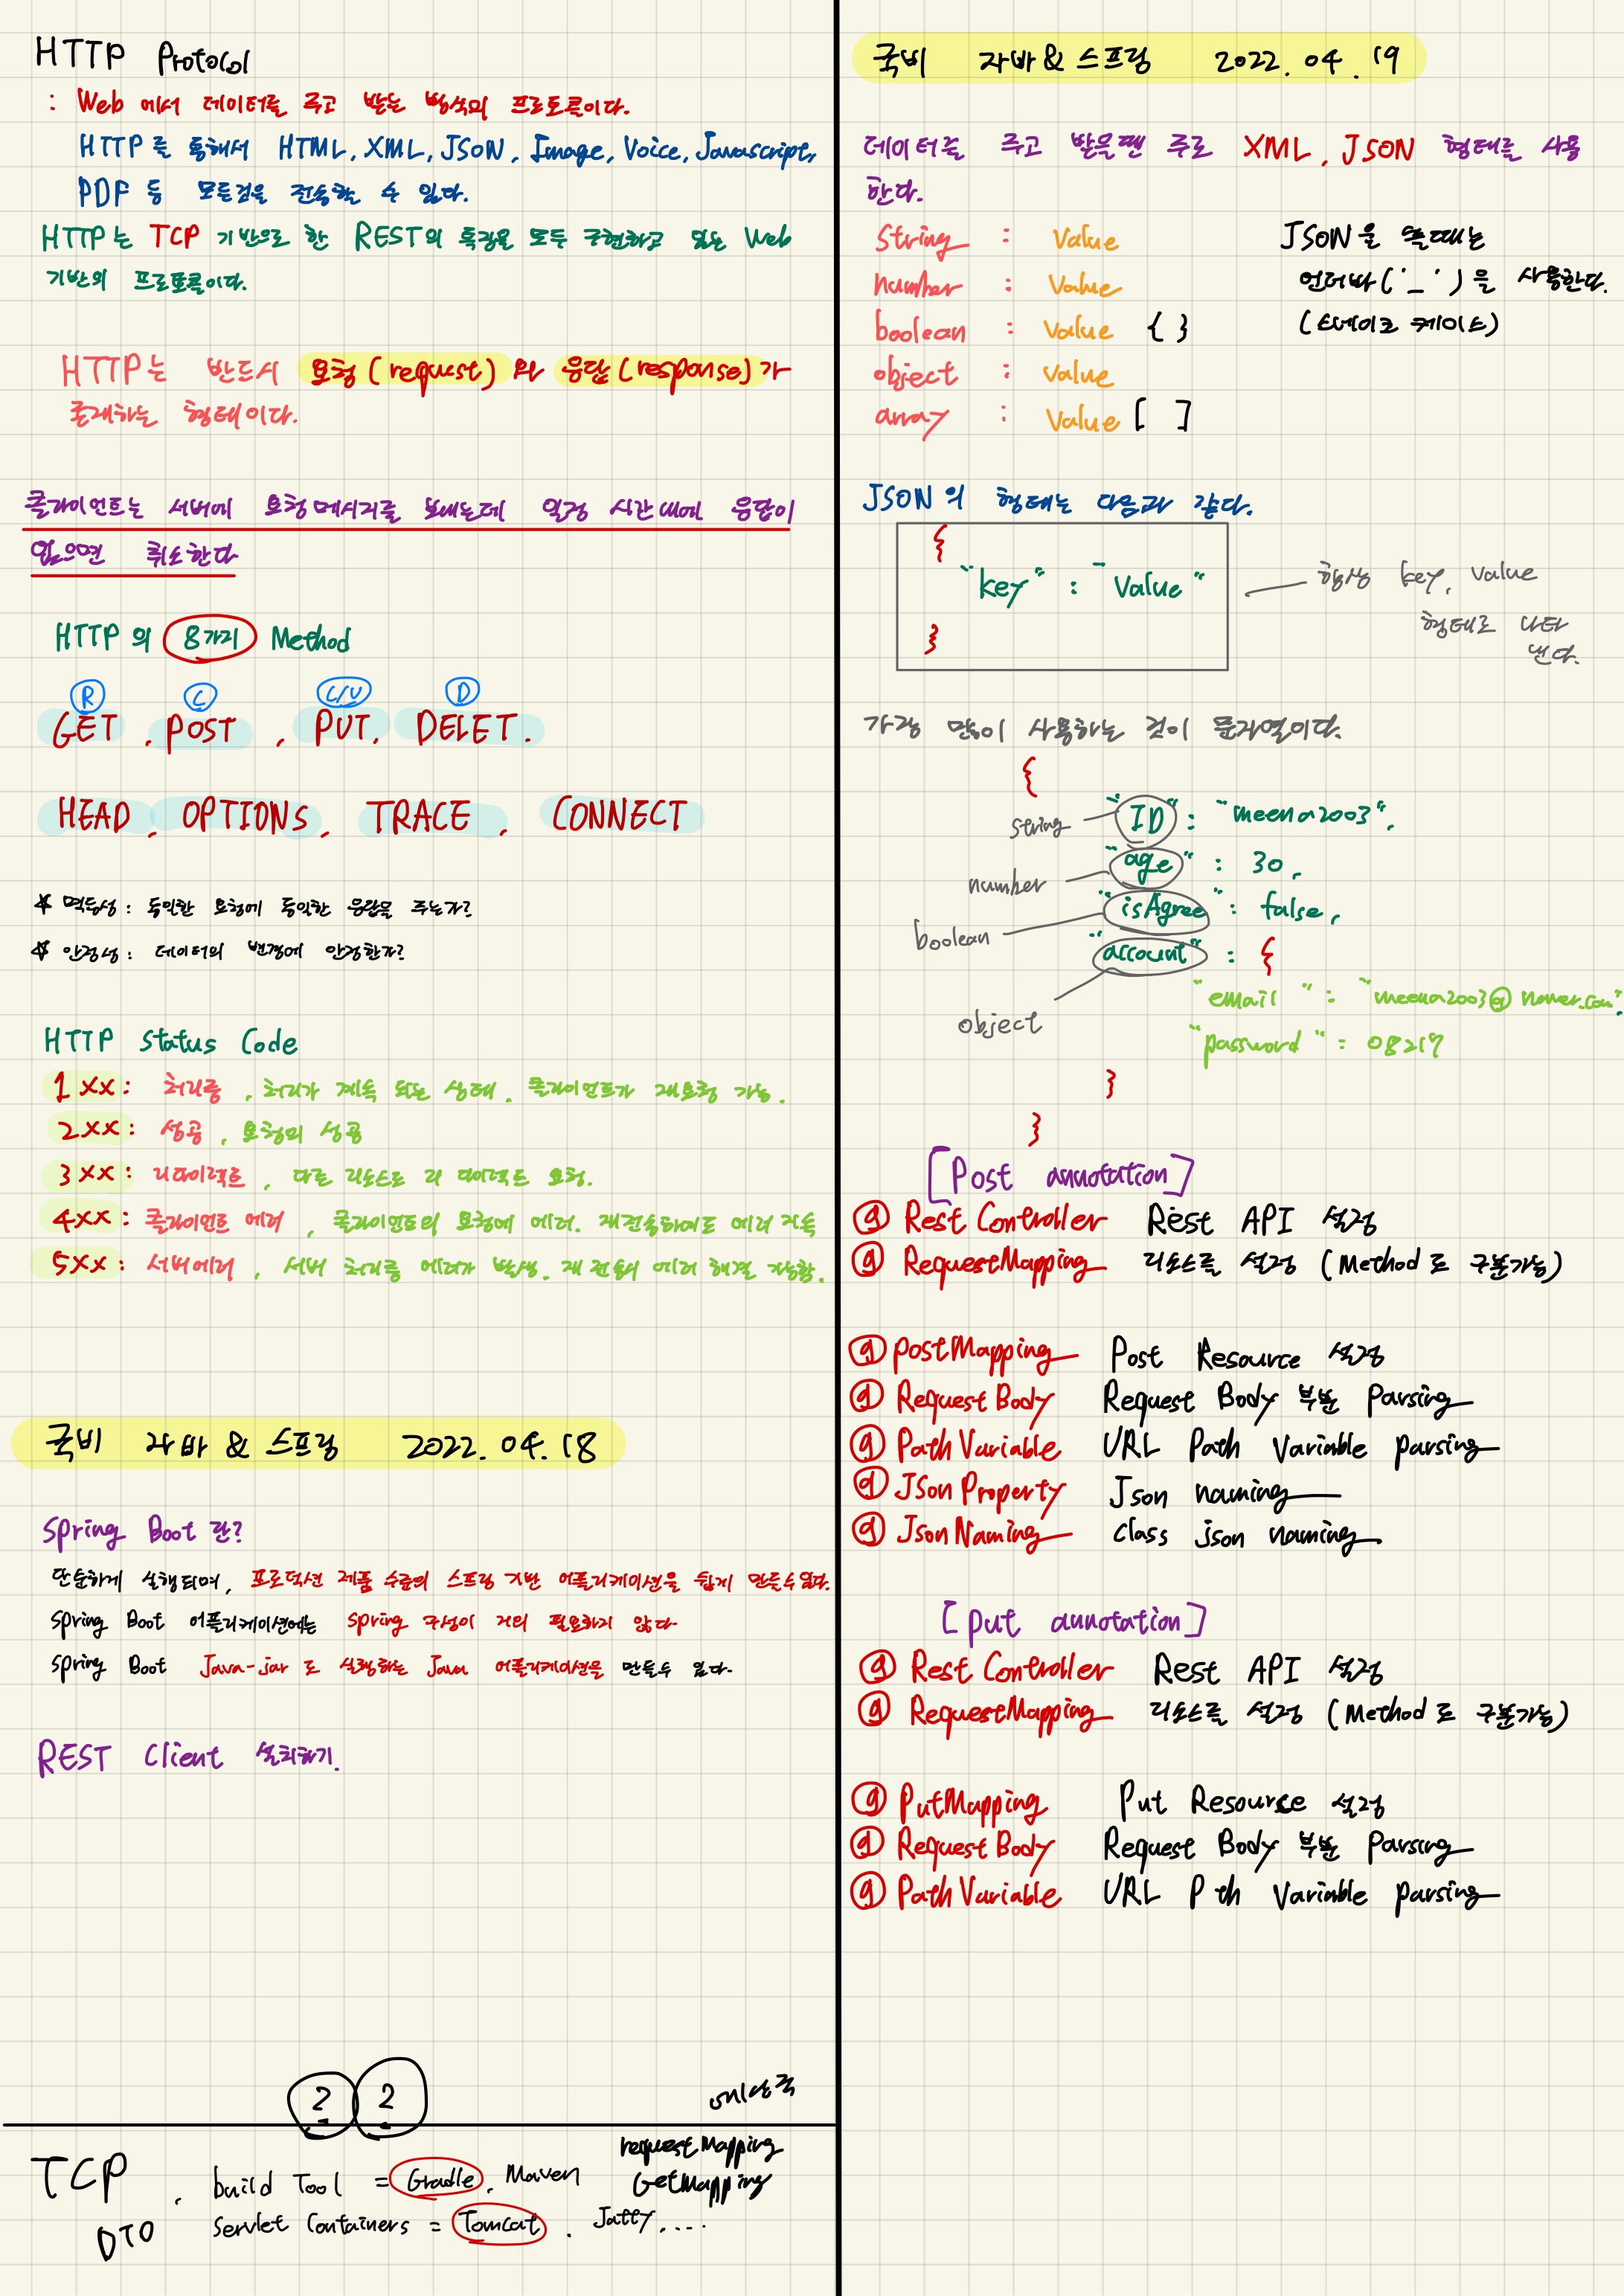 HTTP Protocol
: Web 에서 데이터를 주고 받는 방식의 프로토콜이다.
HTTP를 통해서 HTML, XML, JSON, Image, Voice, Javascript,
PDF 등 모든것을 전송할 수 있다.
HTTP는 TCP 기반으로 한 REST의 특징을 모두 구현하고 있는 Web
기반의 프로토콜이다.
HTTP는 반드시 요청(request)와 응답(response)가
존재하는 형태이다.
클라이언트는 서버에 요청메시지를 보내는데 일정 시간내에 응답이
없으면 취소한다
HTTP의 8가지 Method
R C C/U D
GET, POST, PUT, DELET.
HEAD, OPTIONS, TRACE, CONNECT
☆ 멱등성: 동일한 요청에 동일한 응답을 주는가?
☆ 안정성: 데이터의 변경에 안정한가?
HTTP Status Code
1XX: 처리중, 처리가 계속 되는 상태, 클라이언트가 재요청 가능.
2XX: 성공, 요청의 성공
3XX: 리다이렉트, 다른 리소스로 리다이렉트 요청.
4XX: 클라이언트 에러, 클라이언트의 요청에 에러. 재전송하여도 에러 지속
5XX: 서버에러, 서버 처리중 에러가 발생. 재 전송시 에러 해결 가능함.
국비 자바 & 스프링 2022. 04. 18
Spring Boot 란?
단순하게 실행되며, 프로덕션 제품 수준의 스프링 기반 어플리케이션을 쉽게 만들수있다.
Spring Boot 어플리케이션에는 Spring 구성이 거의 필요하지 않다.
Spring Boot Java-jar 로 실행하는 Java 어플리케이션을 만들수 있다.
REST Client 설치하기.
2 2
requestMapping
GetMapping
TCP, build Tool = Gradle, Maven
DTO Servlet Containers = Tomcat, Jatty, ....
국비 자바 & 스프링 2022. 04. 19
데이터를 주고 받을땐 주로 XML, JSON 형태를 사용
한다.
String : Value
number : Value
boolean : Value { }
object : Value
array : Value [ ]
JSON을 쓸때는
언더바('_')을 사용한다.
(스네이크 케이스)
JSON의 형태는 다음과 같다.
{
"key" : "Value"
}
항상 key, value
형태로 나타
낸다.
가장 많이 사용하는 것이 문자열이다.
{
string "ID" : "meena2003",
number "age" : 30,
boolean "isAgree" : false,
object "account" : {
"email" : "meena2003@naver.com",
"password" : 08217
}
}
[Post annotation]
@ Rest Controller Rest API 설정
@ RequestMapping 리소스를 설정 (Method로 구분가능)
@ PostMapping Post Resource 설정
@ Request Body Request Body 부분 Parsing
@ Path Variable URL Path Variable Parsing
@ JSon Property Json naming
@ Json Naming class json naming
[put annotation]
@ Rest Controller Rest API 설정
@ RequestMapping 리소스를 설정 (Method로 구분가능)
@ PutMapping Put Resource 설정
@ Request Body Request Body 부분 Parsing
@ Path Variable URL P th Variable Parsing